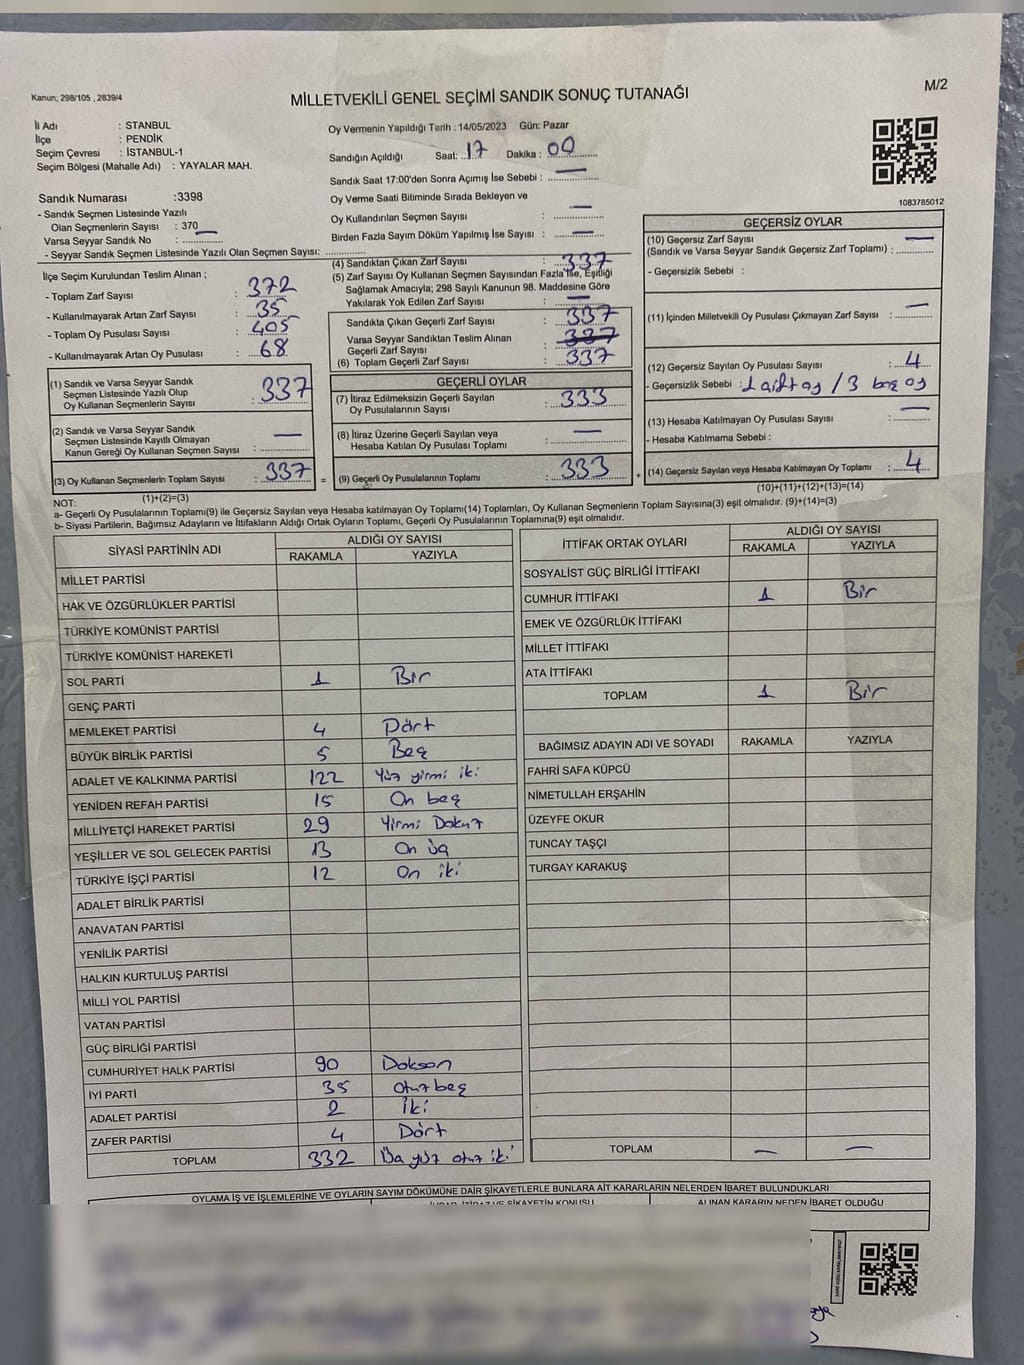 M/2
Kanun; 298/105 , 2839/4
MİLLETVEKİLİ GENEL SEÇİMİ SANDIK SONUÇ TUTANAĞI
İl Adı : STANBUL
İlçe : PENDİK
Seçim Çevresi : İSTANBUL-1
Seçim Bölgesi (Mahalle Adı) : YAYALAR MAH.
Sandık Numarası :3398
- Sandık Seçmen Listesinde Yazılı
Olan Seçmenlerin Sayısı : 370
Varsa Seyyar Sandık No :
- Seyyar Sandık Seçmen Listesinde Yazılı Olan Seçmen Sayısı:
Oy Vermenin Yapıldığı Tarih : 14/05/2023 Gün: Pazar
Sandığın Açıldığı Saat: 17 Dakika : 00
Sandık Saat 17:00'den Sonra Açımış İse Sebebi : —
Oy Verme Saati Bitiminde Sırada Bekleyen ve
Oy Kullandırılan Seçmen Sayısı : —
Birden Fazla Sayım Döküm Yapılmış İse Sayısı : —
1083785012
İlçe Seçim Kurulundan Teslim Alınan ;
- Toplam Zarf Sayısı : 372
- Kullanılmayarak Artan Zarf Sayısı : 35
- Toplam Oy Pusulası Sayısı : 405
- Kullanılmayarak Artan Oy Pusulası : 68
(1) Sandık ve Varsa Seyyar Sandık
Seçmen Listesinde Yazılı Olup
Oy Kullanan Seçmenlerin Sayısı : 337
(2) Sandık ve Varsa Seyyar Sandık
Seçmen Listesinde Kayıtlı Olmayan
Kanun Gereği Oy Kullanan Seçmen Sayısı : —
(3) Oy Kullanan Seçmenlerin Toplam Sayısı : 337
(1)+(2)=(3)
(4) Sandıktan Çıkan Zarf Sayısı : 337
(5) Zarf Sayısı Oy Kullanan Seçmen Sayısından Fazla İse, Eşitliği
Sağlamak Amacıyla; 298 Sayılı Kanunun 98. Maddesine Göre
Yakılarak Yok Edilen Zarf Sayısı : —
Sandıkta Çıkan Geçerli Zarf Sayısı : 337
Varsa Seyyar Sandıktan Teslim Alınan
Geçerli Zarf Sayısı : 337
(6) Toplam Geçerli Zarf Sayısı : 337
GEÇERLİ OYLAR
(7) İtiraz Edilmeksizin Geçerli Sayılan
Oy Pusulalarının Sayısı : 333
(8) İtiraz Üzerine Geçerli Sayılan veya
Hesaba Katılan Oy Pusulası Toplamı : —
= (9) Geçerli Oy Pusulalarının Toplamı : 333 +
GEÇERSİZ OYLAR
(10) Geçersiz Zarf Sayısı
(Sandık ve Varsa Seyyar Sandık Geçersiz Zarf Toplamı) : —
- Geçersizlik Sebebi :
(11) İçinden Milletvekili Oy Pusulası Çıkmayan Zarf Sayısı : —
(12) Geçersiz Sayılan Oy Pusulası Sayısı : 4
- Geçersizlik Sebebi : / 3 boş oy
(13) Hesaba Katılmayan Oy Pusulası Sayısı : —
- Hesaba Katılmama Sebebi :
(14) Geçersiz Sayılan veya Hesaba Katılmayan Oy Toplamı : 4
(10)+(11)+(12)+(13)=(14)
NOT:
a- Geçerli Oy Pusulalarının Toplamı(9) ile Geçersiz Sayılan veya Hesaba katılmayan Oy Toplamı(14) Toplamları, Oy Kullanan Seçmenlerin Toplam Sayısına(3) eşit olmalıdır. (9)+(14)=(3)
b- Siyasi Partilerin, Bağımsız Adayların ve İttifakların Aldığı Ortak Oyların Toplamı, Geçerli Oy Pusulalarının Toplamına(9) eşit olmalıdır.
SİYASİ PARTİNİN ADI ALDIĞI OY SAYISI
RAKAMLA YAZIYLA
MİLLET PARTİSİ
HAK VE ÖZGÜRLÜKLER PARTİSİ
TÜRKİYE KOMÜNİST PARTİSİ
TÜRKİYE KOMÜNİST HAREKETİ
SOL PARTİ 1 Bir
GENÇ PARTİ
MEMLEKET PARTİSİ 4 Dört
BÜYÜK BİRLİK PARTİSİ 5 Beş
ADALET VE KALKINMA PARTİSİ 122 Yüz yirmi iki
YENİDEN REFAH PARTİSİ 15 On beş
MİLLİYETÇİ HAREKET PARTİSİ 29 Yirmi Dokuz
YEŞİLLER VE SOL GELECEK PARTİSİ 13 On üç
TÜRKİYE İŞÇİ PARTİSİ 12 On iki
ADALET BİRLİK PARTİSİ
ANAVATAN PARTİSİ
YENİLİK PARTİSİ
HALKIN KURTULUŞ PARTİSİ
MİLLİ YOL PARTİSİ
VATAN PARTİSİ
GÜÇ BİRLİĞİ PARTİSİ
CUMHURİYET HALK PARTİSİ 90 Doksan
İYİ PARTİ 35 Otuz beş
ADALET PARTİSİ 2 İki
ZAFER PARTİSİ 4 Dört
TOPLAM 332 Üç yüz otuz iki
İTTİFAK ORTAK OYLARI ALDIĞI OY SAYISI
RAKAMLA YAZIYLA
SOSYALİST GÜÇ BİRLİĞİ İTTİFAKI
CUMHUR İTTİFAKI 1 Bir
EMEK VE ÖZGÜRLÜK İTTİFAKI
MİLLET İTTİFAKI
ATA İTTİFAKI
TOPLAM 1 Bir
BAĞIMSIZ ADAYIN ADI VE SOYADI RAKAMLA YAZIYLA
FAHRİ SAFA KÜPCÜ
NİMETULLAH ERŞAHİN
ÜZEYFE OKUR
TUNCAY TAŞÇI
TURGAY KARAKUŞ
TOPLAM — —
OYLAMA İŞ VE İŞLEMLERİNE VE OYLARIN SAYIM DÖKÜMÜNE DAİR ŞİKAYETLERLE BUNLARA AİT KARARLARIN NELERDEN İBARET BULUNDUKLARI
İTİRAZ VE ŞİKAYETİN KONUSU ALINAN KARARIN NEDEN İBARET OLDUĞU